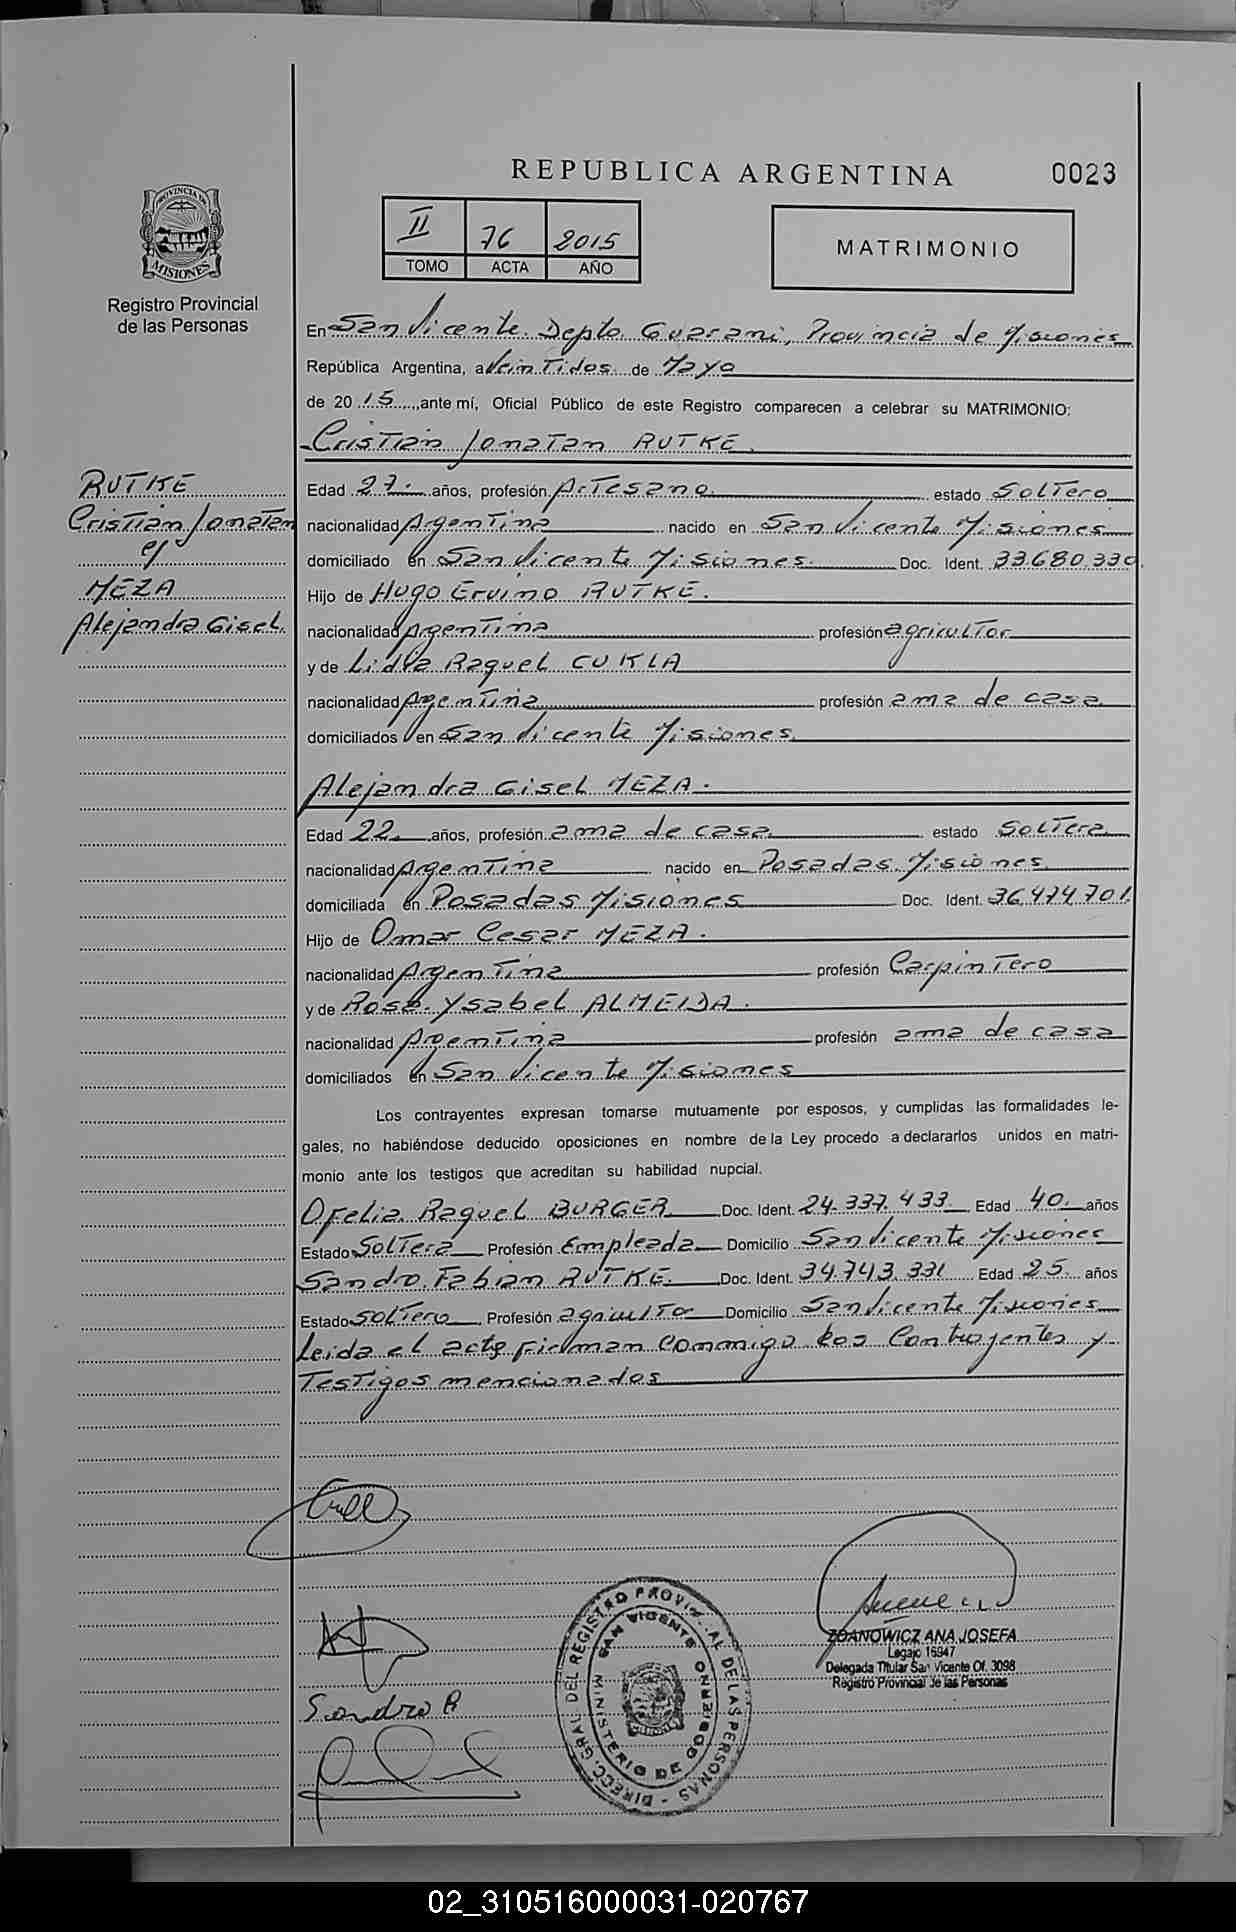 REPUBLICA ARGENTINA 0023
PROVINCIA DE MISIONES
Registro Provincial
de las Personas
II 76 2015
TOMO ACTA AÑO
MATRIMONIO
En San Vicente. Depto. Guarani, Provincia de Misiones
República Argentina, a Veintidos de Mayo
de 20 15, ante mí, Oficial Público de este Registro comparecen a celebrar su MATRIMONIO:
Cristián Jonatan RUTKE.
RUTKE
Cristián Jonatan
c/
MEZA
Alejandra Gisel.
Edad 27. años, profesión Artesano. estado Soltero
nacionalidad Argentina nacido en San Vicente Misiones
domiciliado en San Vicente Misiones. Doc. Ident. 33.680.330
Hijo de Hugo Ervino RUTKE.
nacionalidad Argentina profesión agricultor
y de Lidia Raquel CUKLA
nacionalidad Argentina profesión ama de casa
domiciliados en San Vicente Misiones.
Alejandra Gisel MEZA.
Edad 22. años, profesión ama de casa estado Soltera
nacionalidad Argentina nacido en Posadas. Misiones.
domiciliada en Posadas Misiones Doc. Ident. 36.474.701.
Hijo de Omar Cesar MEZA.
nacionalidad Argentina profesión Carpintero
y de Rosa. Ysabel ALMEIDA.
nacionalidad Argentina profesión ama de casa
domiciliados en San Vicente Misiones
Los contrayentes expresan tomarse mutuamente por esposos, y cumplidas las formalidades le-
gales, no habiéndose deducido oposiciones en nombre de la Ley procedo a declararlos unidos en matri-
monio ante los testigos que acreditan su habilidad nupcial.
Ofelia. Raquel BURGER Doc. Ident. 24.337.433 Edad 40. años
Estado Soltera Profesión Empleada Domicilio San Vicente Misiones
Sandro. Fabian RUTKE. Doc. Ident. 34.743.331 Edad 25 años
Estado Soltero Profesión agricultor Domicilio San Vicente Misiones
Leida el acta firman conmigo los Contrayentes y
Testigos mencionados
Sandro R
DIRECC. GRAL DEL REGISTRO PROVINCIAL DE LAS PERSONAS -
SAN VICENTE
MINISTERIO DE GOBIERNO
ZDANOWICZ ANA JOSEFA
Legajo 16947
Delegada Titular San Vicente Of. 3098
Registro Provincial de las Personas
02_310516000031-020767